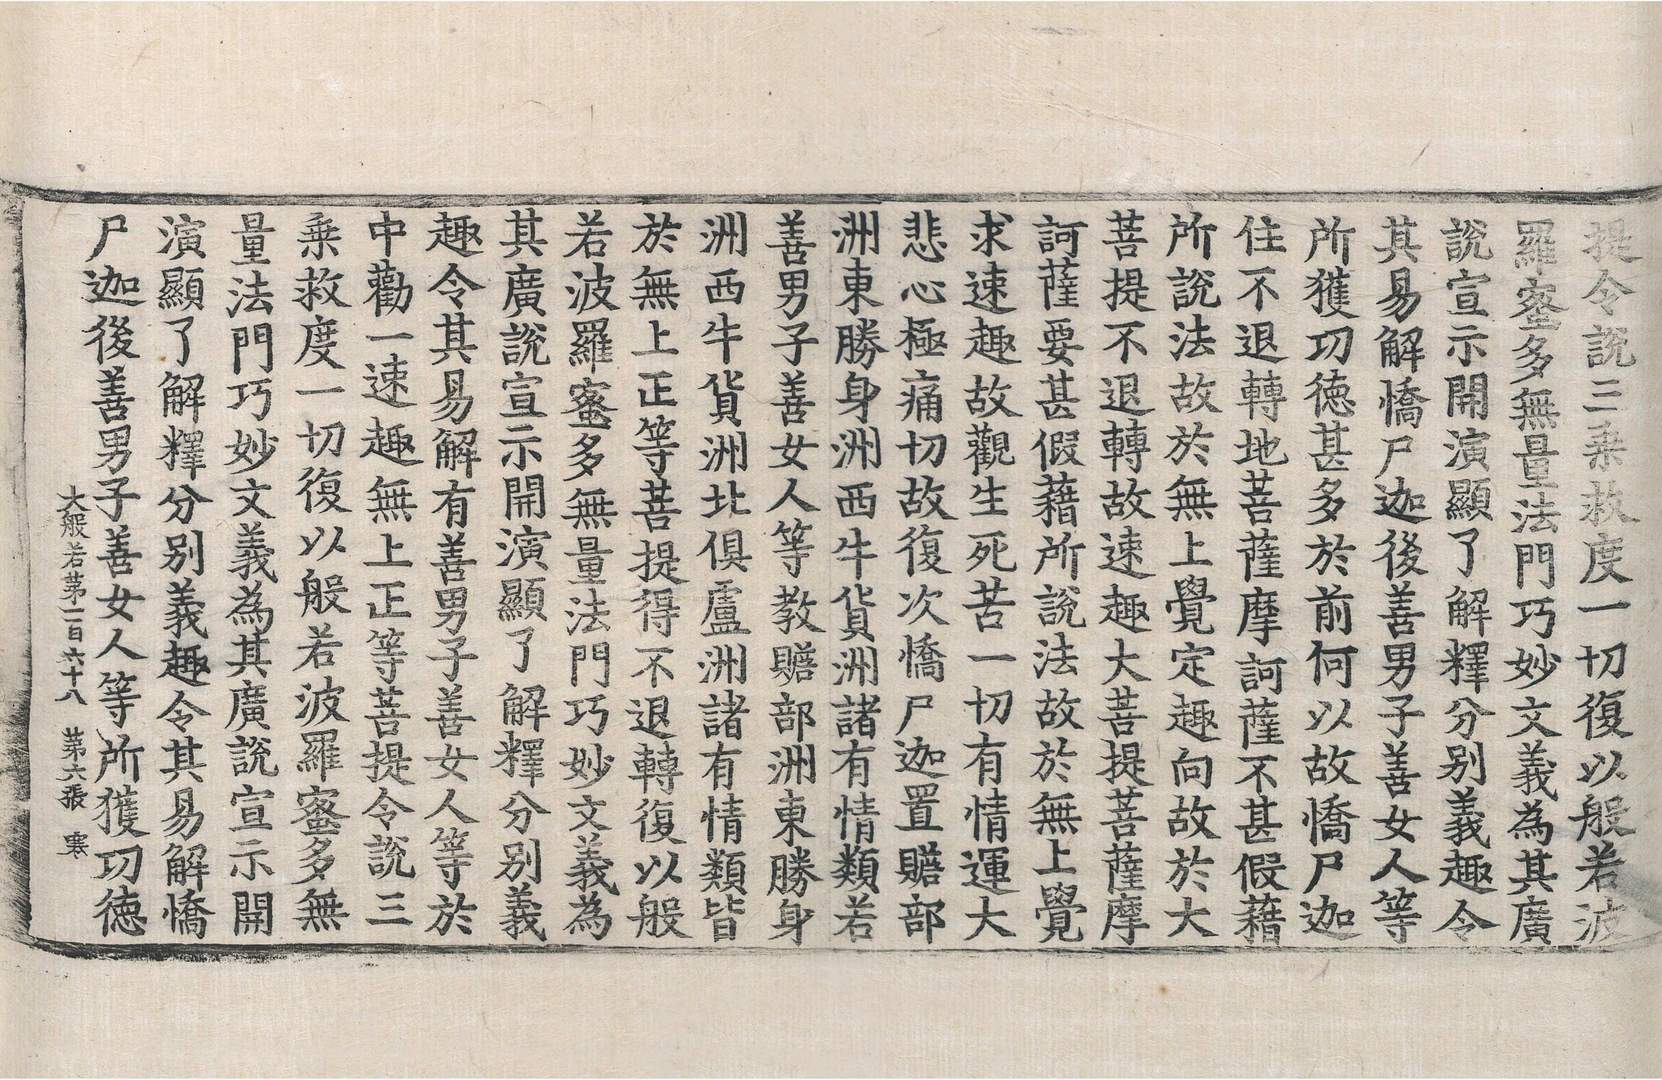 提令說三乘救度一切復以般若波
羅蜜多無量法門巧妙文義為其廣
說宣示開演顯了解釋分別義趣令
其易解憍尸迦後善男子善女人等
所獲功德甚多於前何以故憍尸迦
住不退轉地菩薩摩訶薩不甚假藉
所說法故於無上覺定趣向故於大
菩提不退轉故速趣大菩提菩薩摩
訶薩要甚假藉所說法故於無上覺
求速趣故觀生死苦一切有情運大
悲心極痛切故復次憍尸迦置贍部
洲東勝身洲西牛貨洲諸有情類若
善男子善女人等教贍部洲東勝身
洲西牛貨洲北俱盧洲諸有情類皆
於無上正等菩提得不退轉復以般
若波羅蜜多無量法門巧妙文義為
其廣說宣示開演顯了解釋分別義
趣令其易解有善男子善女人等於
中勸一速趣無上正等菩提令說三
乘救度一切復以般若波羅蜜多無
量法門巧妙文義為其廣說宣示開
演顯了解釋分別義趣令其易解憍
尸迦後善男子善女人等所獲功德
大般若第一百六十八　第六張　寒